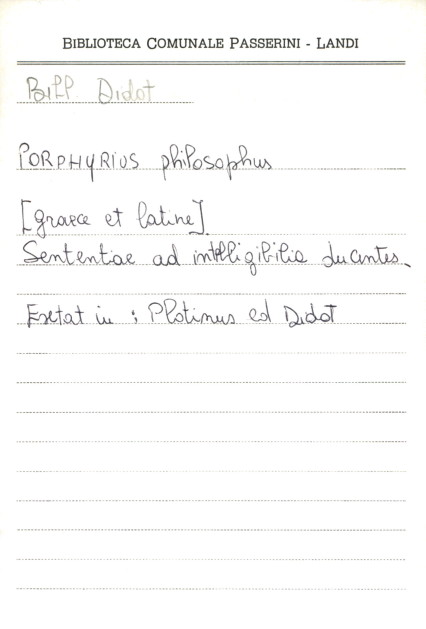 BIBLIOTECA COMUNALE PASSERINI - LANDI
Bibl Didot
PORPHYRIUS philosophus
[graece et latine]
Sententiae ad intelligibilia ducentes
Exstat in : Plotinus ed Didot